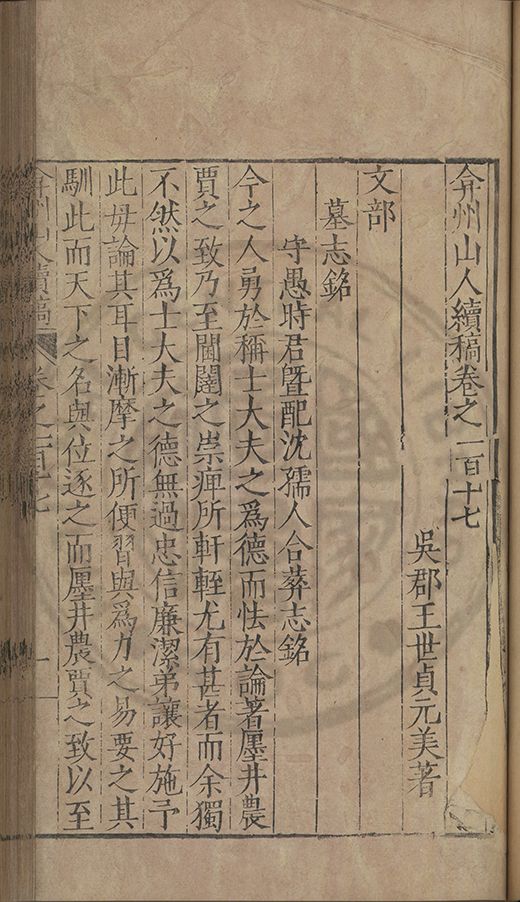 弇州山人續稿卷之一百十七
吳郡王世貞元美著
文部
墓志銘
守愚時君暨配沈孺人合葬志銘
今之人勇於稱士大夫之爲德而怯於論著廛井農
賈之致乃至閫闥之崇庳所軒輊尤有甚者而余獨
不然以爲士大夫之德無過忠信廉潔弟讓好施予
此毋論其耳目漸摩之所便習與爲力之易要之其
馴此而天下之名與位逐之而廛井農賈之致以至
弇州山人續稿 卷之一百十七 一